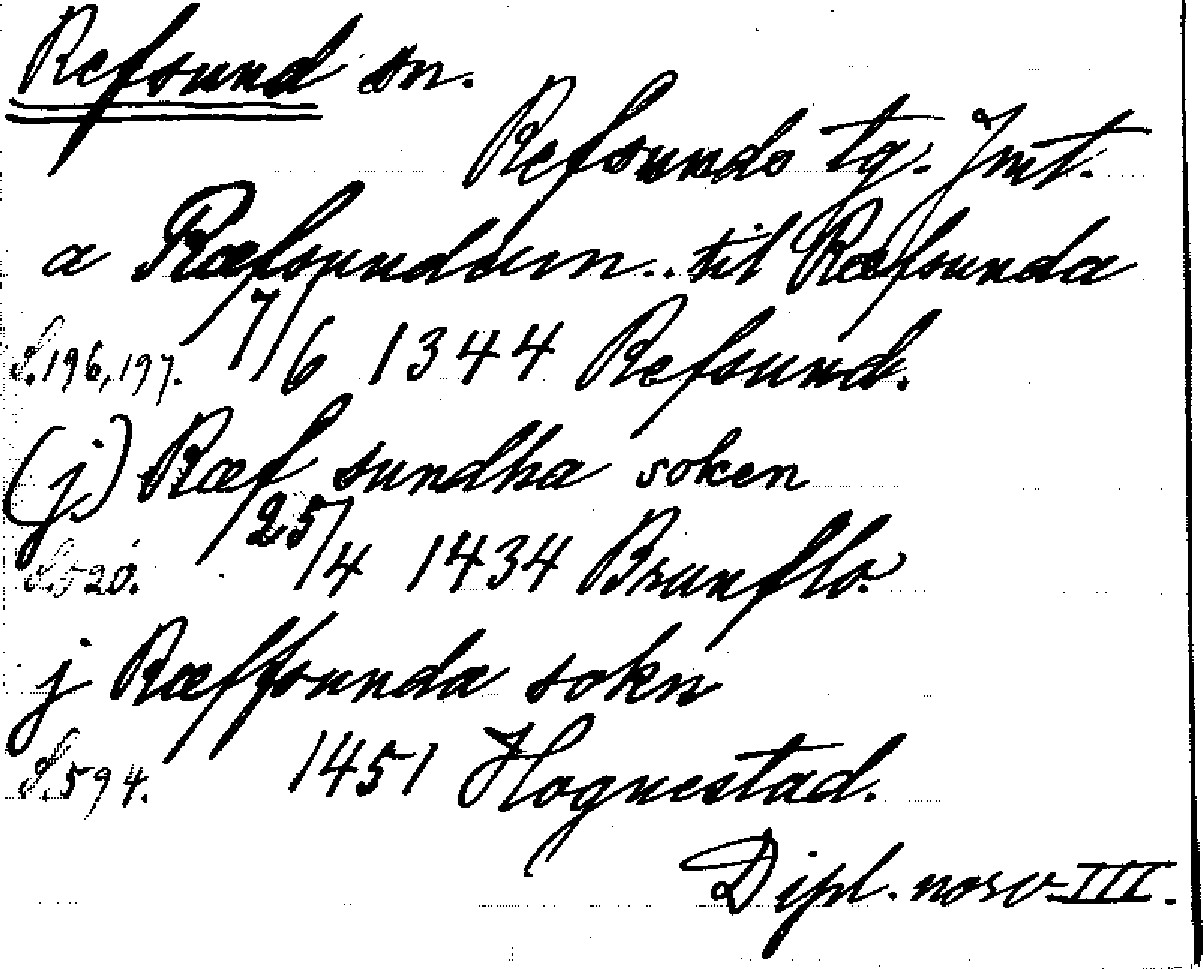 Refsund sn.
Refsunds tg. Jmt.
a Ræfsundum.. til Ræfsunda
S. 196, 197. 7/6 1344 Refsund.
(j) Ræf sundha soken
S. 520. 25/4 1434 Brunflo.
j Ræffsunda sokn
S. 594. 1451 Hognestad.
Dipl. norv. III.